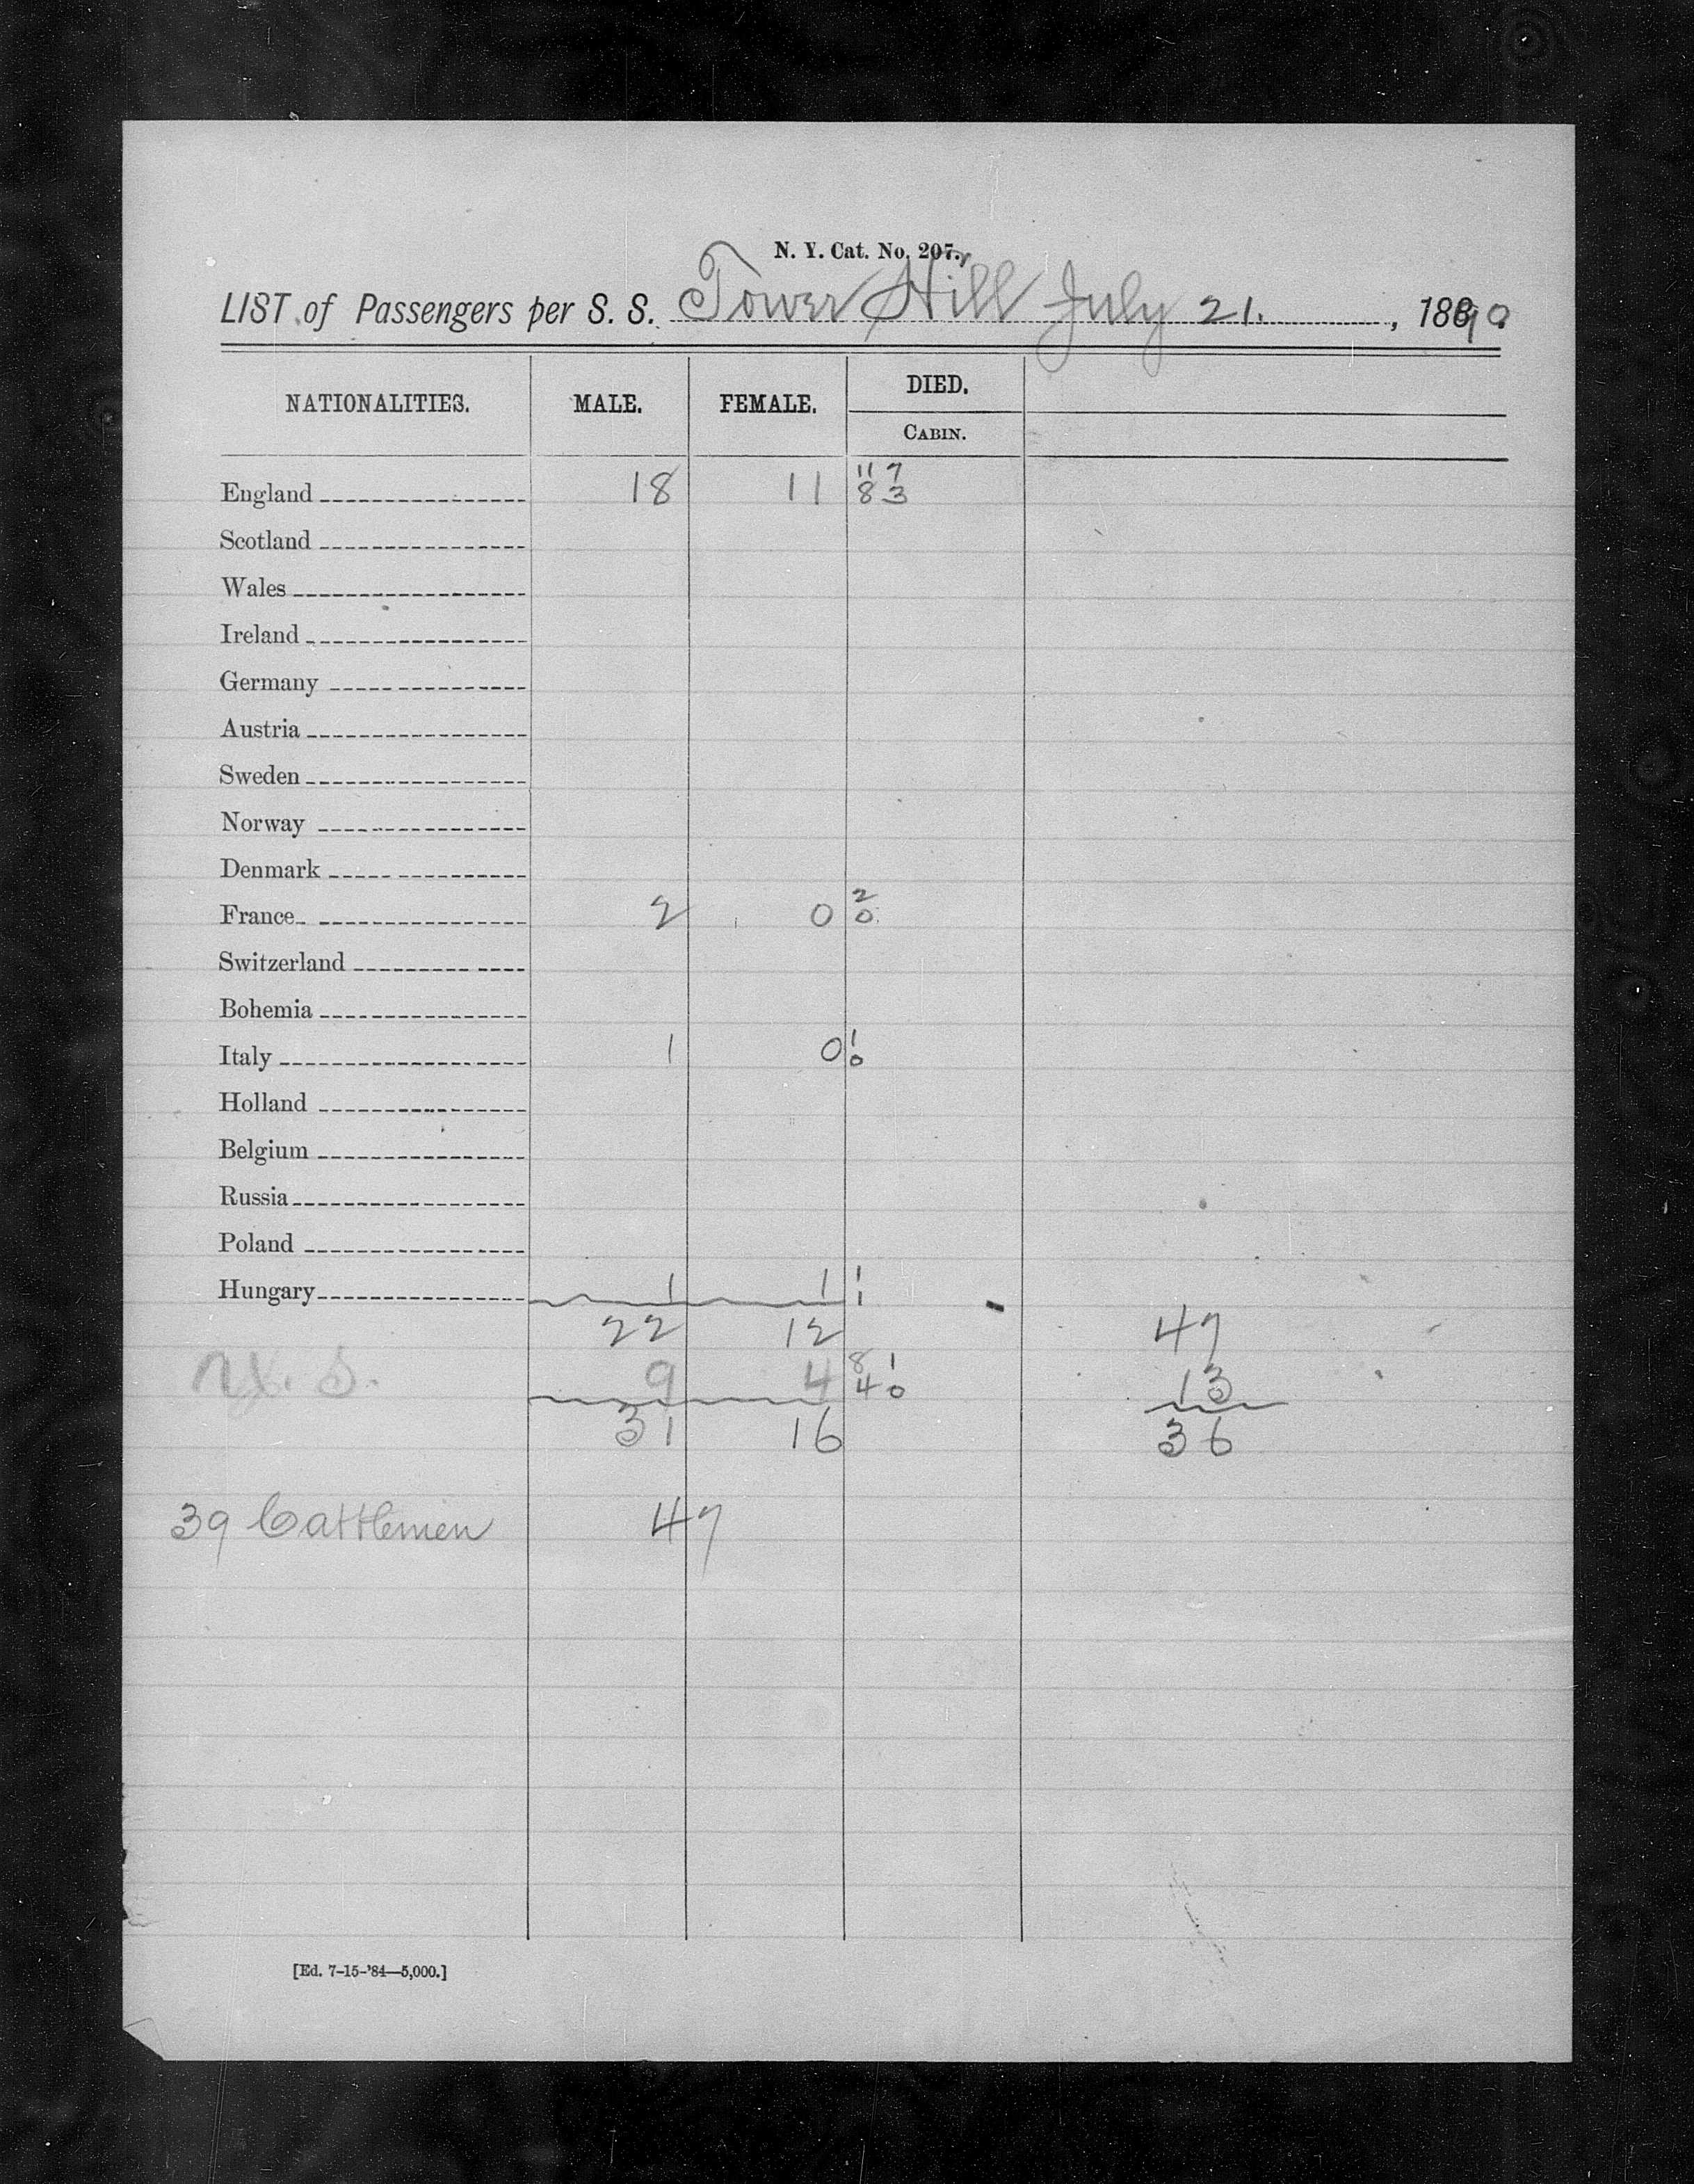 N. Y. Cat. No. 207.
LIST of Passengers per S. S. Tower Hill July 21. , 1890
NATIONALITIES. MALE. FEMALE. DIED.
CABIN.
11 7
England 18 11 8 3
Scotland
Wales
Ireland
Germany
Austria
Sweden
Norway
Denmark
2
France 2 0 0
Switzerland
Bohemia
1
Italy 1 0 0
Holland
Belgium
Russia
Poland
1
Hungary 1 1 1
22 12 47
8 1
U. S. 9 4 4 0 13
31 16 36
39 Cattlemen 47
[Ed. 7-15-'84—5,000.]